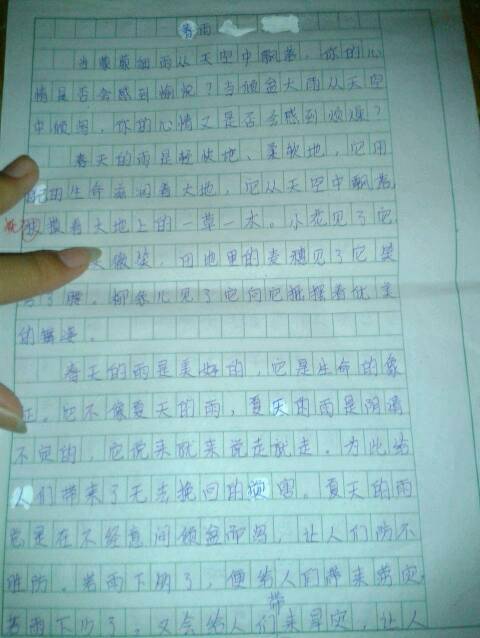 春雨
当蒙蒙细雨从天空中飘落，你的心
情是否会感到愉悦？当倾盆大雨从天空
中倾泻，你的心情又是否会感到烦燥？
春天的雨是轻快地、柔软地，它用
自己的生命滋润着大地，它从天空中飘落，
散着大地上的一草一木。小花见了它
微笑，田地里的麦穗见了它笑
了腰，柳条儿见了它向它摇摆着优美
的舞姿。
春天的雨是美好的，它是生命的象
征。它不像夏天的雨，夏天的雨是阴晴
不定的，它说来就来说走就走。为此给
人们带来了无法挽回的损害。夏天的雨
总是在不经意间倾盆而泻，让人们防不
胜防。若雨下纳了，便给人们带来涝灾，
若雨下少了，又会给人们带来旱灾，让人